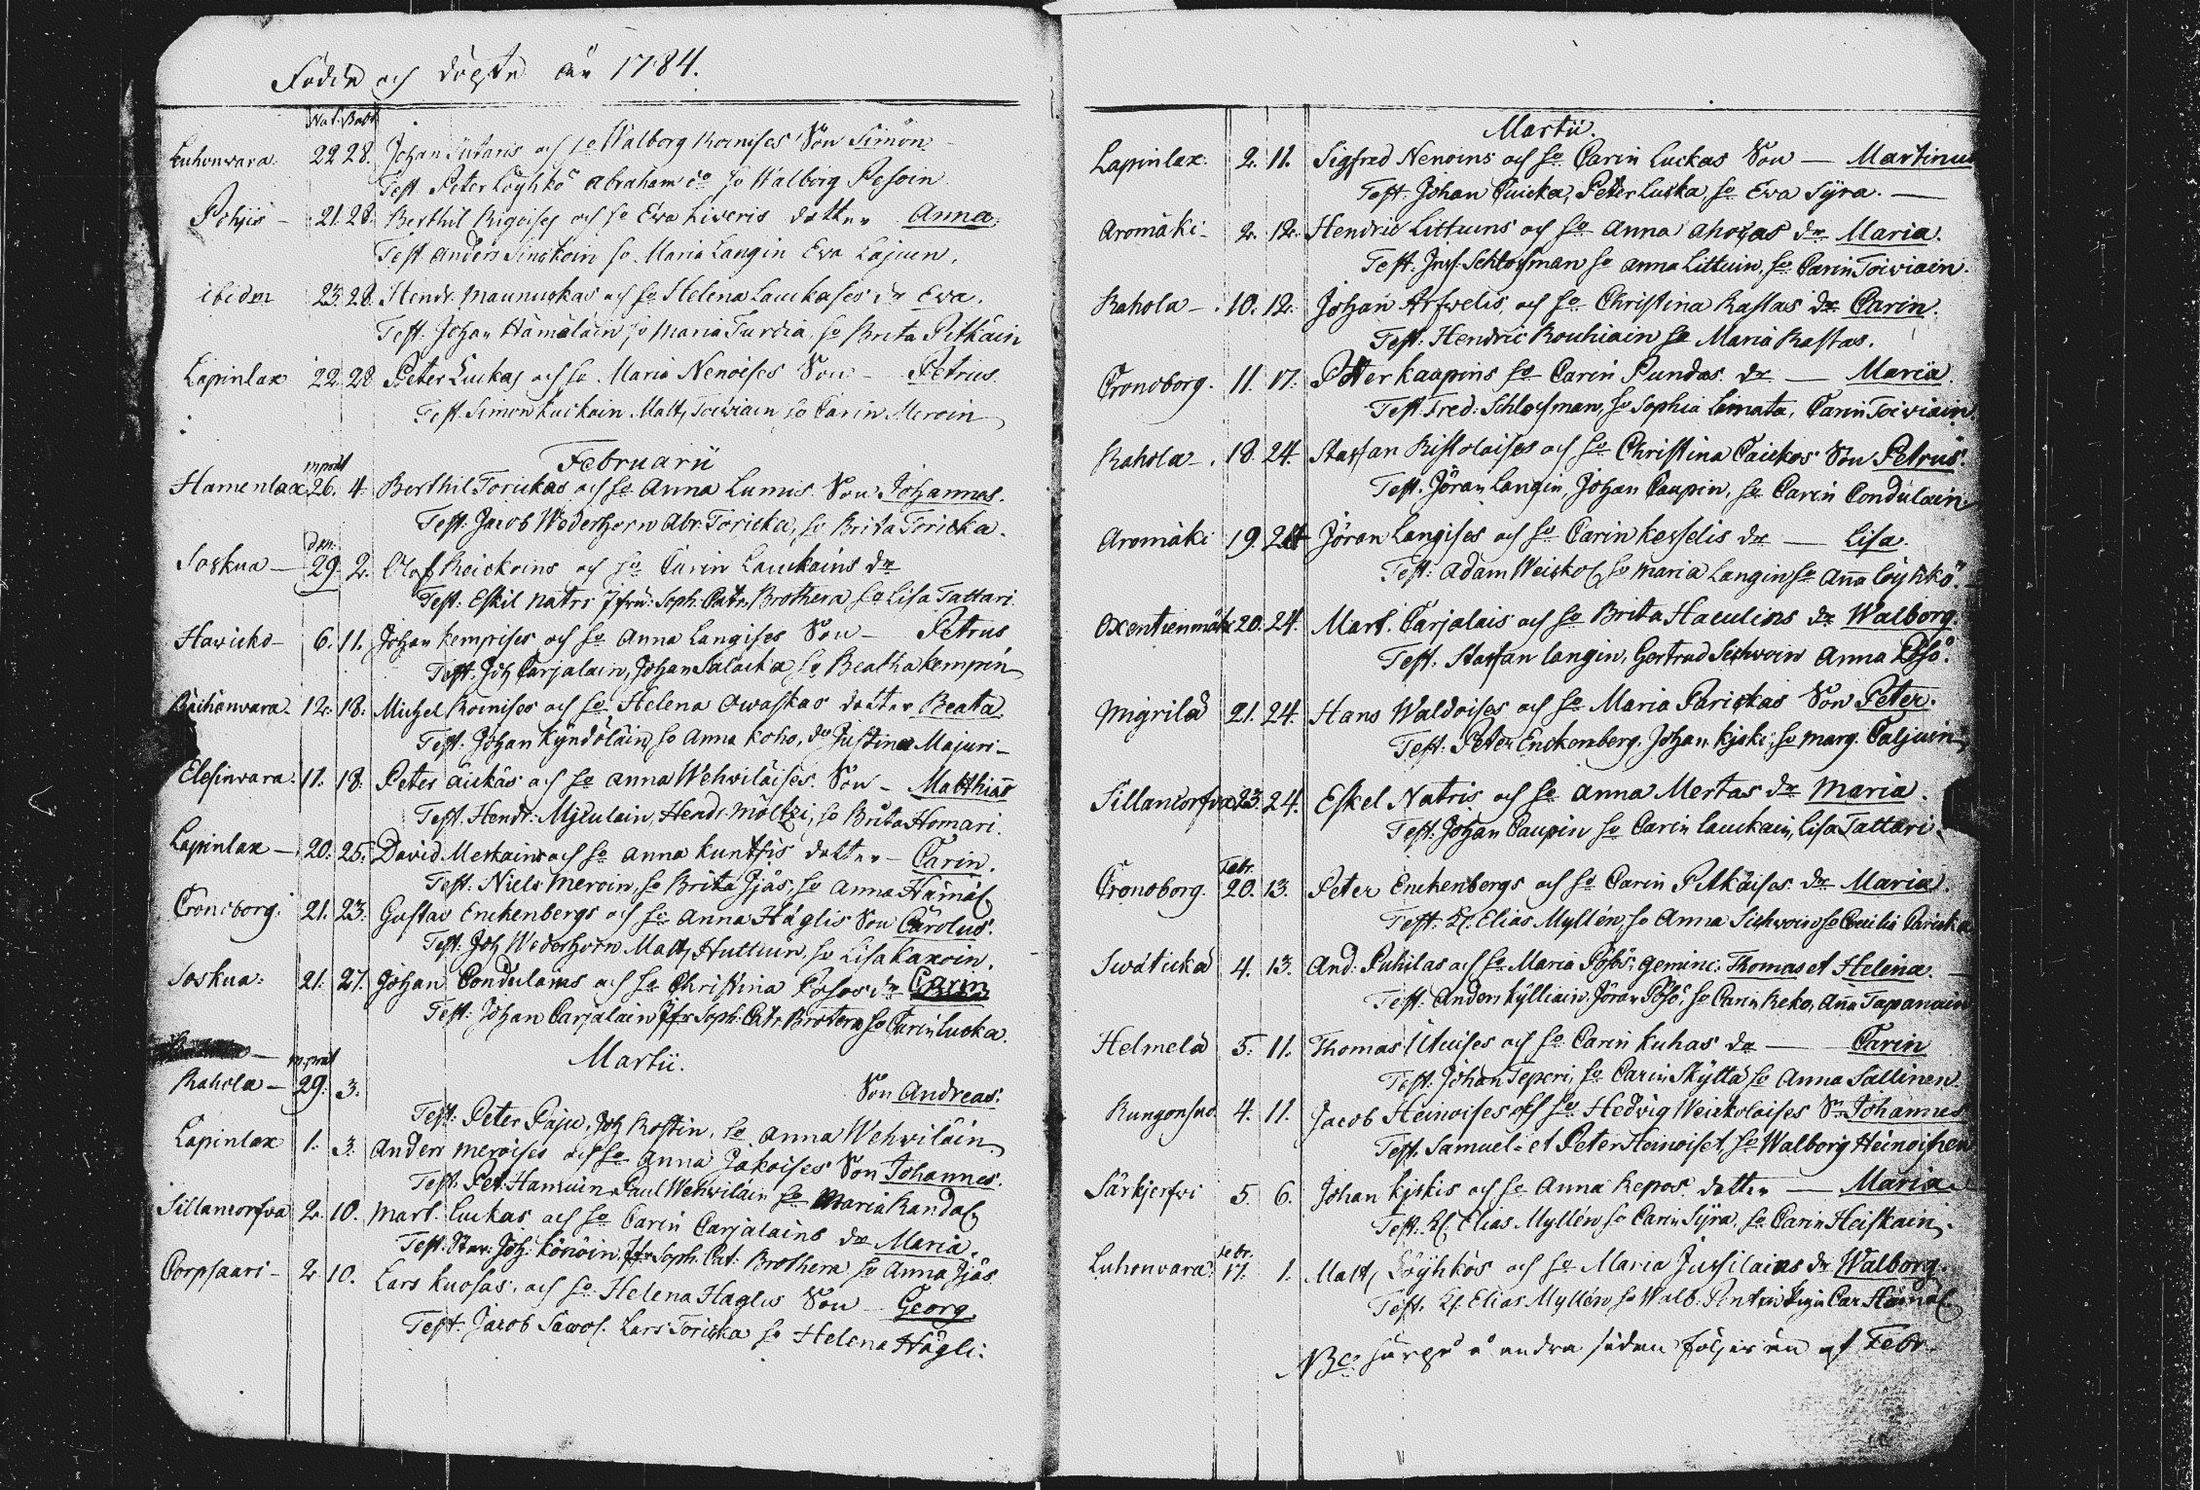 Födde och döpte år 1784.
Nat. Bapt.
Luhonvara. 22 28. Johan Sutaris och h:o Walborg Roinises Son Simon
Test. Peter Löyhkö Abraham d:o h:o Walborg Pesoin
Pohjis – 21. 28. Berthil Rigoises och h:o Eva Liveris dotter Anna.
Test. Anders Sinckoin h:o Maria Langin Eva Lajuen.
ibidm 23 28. Hendr. Maunuskas och h:o Helena Lauckases dr Eva.
Test. Johan Hämäläin h:o Maria Turcia h:o Brita Pitkäin
Lapinlax 22 28 Peter Luckas och h:o Maria Nenoises Son – Petrus
Test. Simon Kuckoin. Matts Toiviain h:o Carin Meroin
Februarii
m præt
Hamenlax 26. 4. Berthil Torickas och h:o Anna Lumis Son Johannes.
Test: Jacob Wederhorn Abr: Toricka, h:o Brita Toricka.
Soskua – 29 2. Olof Reickoins och h:o Carin Lauckains dr
Test: Eskil Natri Jfru: Soph: Catr. Brothera h:o Lisa Tattari
Havicko – 6. 11. Johan Kempises och h:o Anna Langises Son – Petrus
Test. Joh Carjalain, Johan Salacka h:o Beatha Kempin
12. 18. Michel Roinises och h:o Helena Owaskas dotter Beata.
Test. Johan Kyndöläin, h:o Anna Koho, do Justina Majuri –
Elesinvara. 11. 18. Peter Äickäs och h:o Anna Wehviläises. Son – Matthias
Test. Hendr: Myculain, Hendr Möltzi, h:o Brita Homari.
Lapinlax – 20. 25. David Meskains och h:o Anna Kuntsis dotter – Carin.
Test: Niels Meroin, h:o Brita Jjäs, h:o Anna Hämäl
Cronoborg. 21. 23. Gustav Enckenbergs och h:o Anna Häglis Son Carolus.
Test: Joh Wederhorn Matts Huttuin, h:o Lisa Kaxoin.
Soskua: 21. 27. Johan Condulains och h:o Christina Posos dr Carin
Test: Johan Carjalain Jfr Soph: Catr: Brotera h:o Carin Lucka.
Martii.
m. præt
Rahola – 29. 3. Son Andreas.
Test: Peter Paju, Joh Rostin, h:o Anna Wehviläin
Lapinlax 1. 3. Anders Meroises och h:o Anna Jakoises Son Johannes.
Test: Pet: Hanuin, Paul Wehviläin h:o Maria Randal
Sillancorfva 2. 10. Mart. Luckas och h:o Carin Carjalains dr Maria.
Test: Stu: Joh: Könöin, Jfr Soph: Cat: Brothera h:o Anna Jjäs
Corpsaari – 2. 10. Lars Kuosas: och h:o Helena Haglis Son – Georg.
Test: Jacob Sawol. Lars Toricka h:o Helena Hägli:
Martii.
Lapinlax. 2. 11. Sigfred Nenoins och h:o Carin Luckas Son – Martinus
Test: Johan Cuicka, Peter Lucka, h:o Eva Syra. –
Aromäki – 2. 12. Hendric Littuins och h:o Anna Ahokas dr Maria.
Test: Insp: Schlosman h:o Anna Littuin, h:o Carin Toiviain.
Rahola – 10. 12. Johan Arfvelis, och h:o Christina Rastas dr Carin.
Test: Hendric Rouhiain h:o Maria Rastas.
Cronoborg. 11. 17. Petter Kaupins h:o Carin Pundas dr – Maria.
Test. Fred: Schlosman, h:o Sophia Leimata, Carin Toiviain
Rahola –. 18. 24. Staffan Ristolaises och h:o Christina Caickos Son Petrus.
Test. Jöran Langin, Johan Caupin, h:o Carin Condulain
Aromäki 19. 24 Jöran Langises och h:o Carin Kesselis dr – Lisa.
Test: Adam Weickol h:o Maria Langin h:o Aña Löyhkö.
20. 24. Mart. Carjalais och h:o Brita Haculins dr Walborg.
Test. Staffan Langin, Gertrud Sichvoin Anna Pösö.
Migrilä 21. 24. Hans Waldoises och h:o Maria Parickas Son Peter.
Test. Peter Enckenberg. Johan Kjski, h:o Marg. Caljuin
Sillancorfva 23. 24. Eskel Natris och h:o Anna Mertas dr Maria.
Test: Johan Caupin h:o Carin Lauckain, Lisa Tattari.
Febr.
Cronoborg. 20. 13. Peter Enckenbergs och h:o Carin Pitkäises dr Maria.
Test: Kl: Elias Myllén, h:o Anna Sichvoin h:o Cecilia Paricka
Swätickä 4. 13. And: Puhilas och h:o Maria Pösös, gemini: Thomas et Helena. –
Test: Anders Kylliain, Jöran Pösö, h:o Carin Reko, Aña Tapanain
Helmelä 5. 11. Thomas Uuises och h:o Carin Kuhas dr – Carin
Test. Johan Teperi, h:o Carin Skyttä h:o Anna Sallinen.
Kungonsuo 4. 11. Jacob Heinoises och h:o Hedvig Weickolaises Sn Johannes
Test. Samuel et Peter Heinoiset, h:o Walborg Heinoinen
Särkjerfvi 5. 6. Johan Kjskis och h:o Anna Repos dotter – Maria.
Test. Kl. Elias Myllén h:o Carin Syra, h:o Carin Heiskain.
Febr.
Luhonvara. 17. 1. Matts Löyhkös och h:o Maria Jussilains dr Walborg.
Test. Kl: Elias Myllén h:o Walb. Car Hämäl.
NB. å andra sidan följer än af Febr.